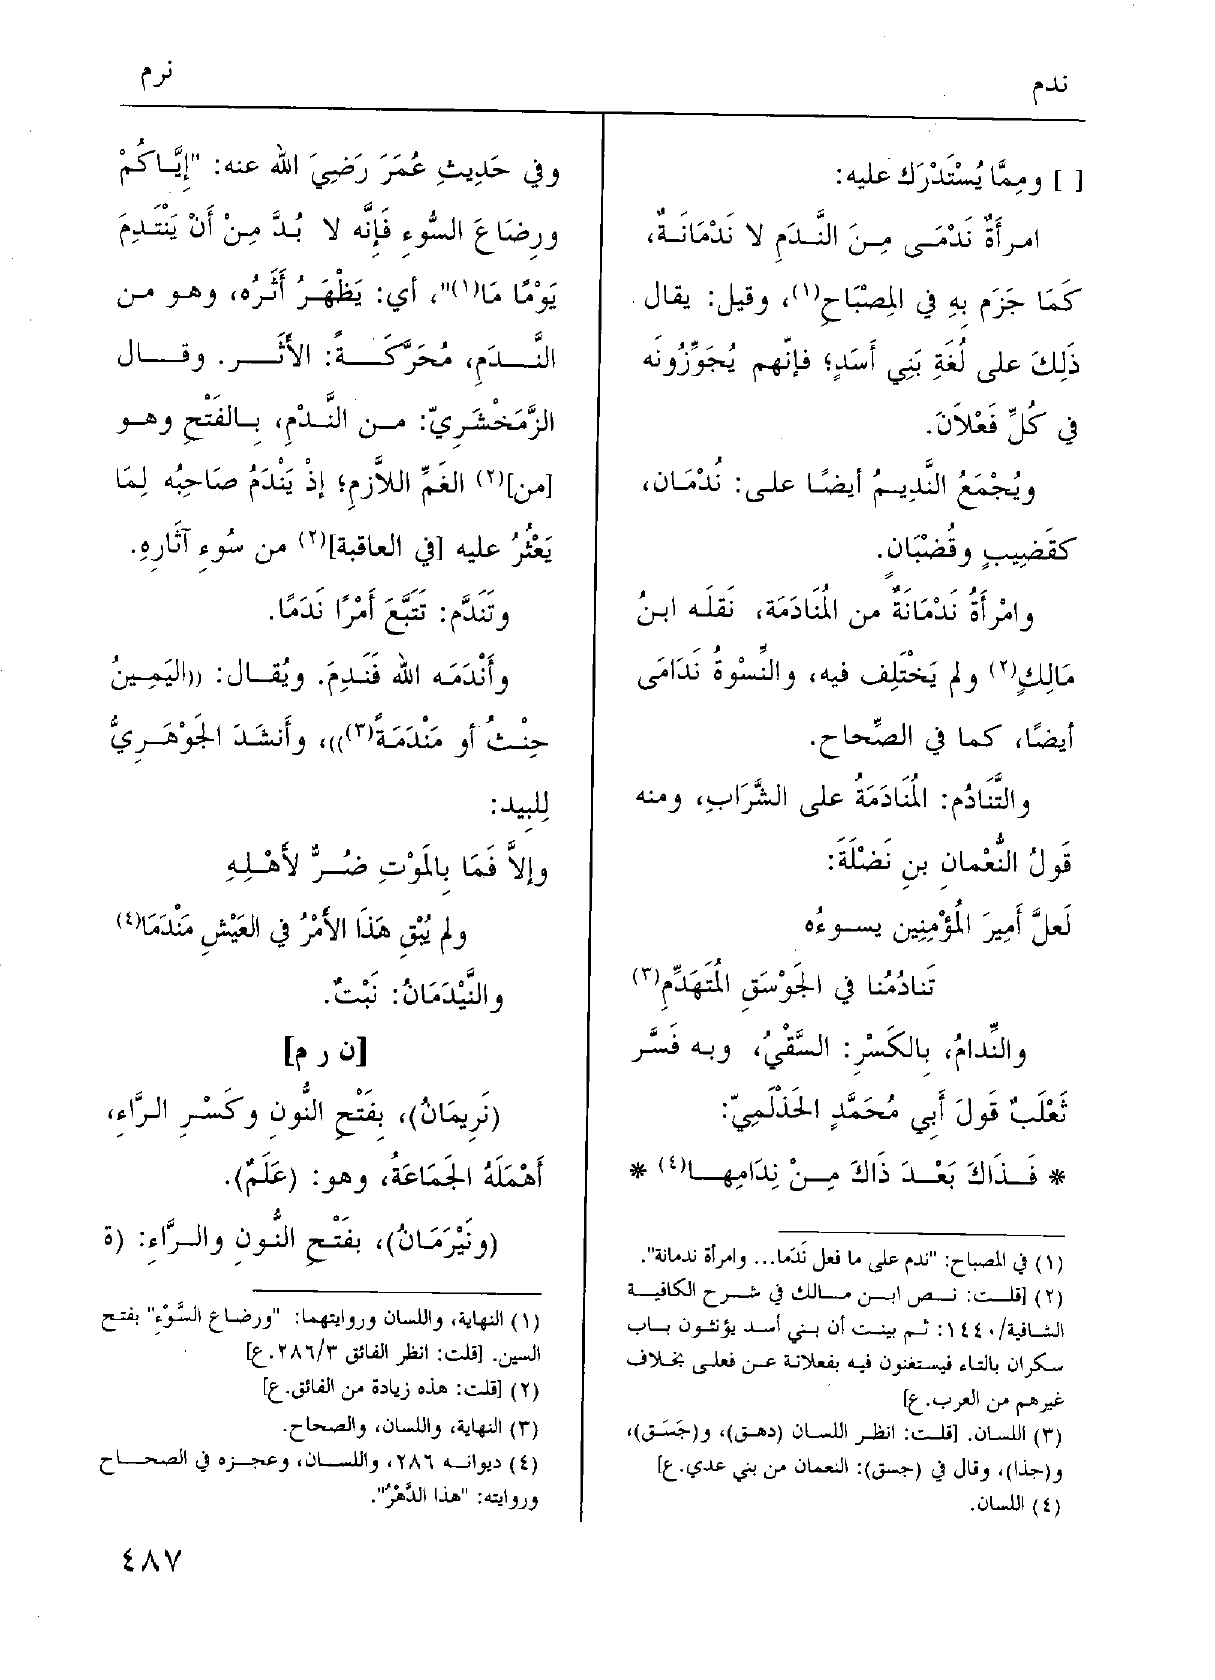 ندم
نرم
[ ] ومِمَّا يُسْتَدْرَك عليه:
امرأَةٌ نَدْمَى مِنَ النَّدَمِ لا نَدْمَانَةٌ،
كَمَا جَزَم بِهِ في المِصْبَاحِ(١)، وقيل: يقال
ذَلِكَ على لُغَةِ بَنِي أَسَدٍ؛ فإنّهم يُجَوِّزُونَه
في كُلِّ فَعْلاَنَ.
ويُجْمَعُ النَّدِيمُ أيضًا على: نُدْمَان،
كقَضِيبٍ وقُضْبَانٍ.
وامْرأَةٌ نَدْمَانَةٌ من المُنَادَمَة، نَقَلَه ابنُ
مَالِكٍ(٢) ولم يَخْتَلِف فيه، والنِّسْوةُ نَدَامَى
أيضًا، كما في الصِّحاح.
والتَّنَادُم: المُنَادَمَةُ على الشَّرَابِ، ومنه
قَولُ النُّعْمانِ بنِ نَضْلَةَ:
لَعلَّ أَمِيرَ المُؤْمِنِين يسـوءُه
تَنادُمُنا في الجَوْسَقِ المُتَهَدِّمِ(٣)
والنِّدامُ، بالكَسْرِ: السَّقْيُ، وبه فَسَّر
ثَعْلَبٌ قَولَ أبي مُحَمَّدٍ الحَذْلَمِيّ:
* فَذَاكَ بَعْدَ ذَاكَ مِنْ نِدَامِهَا(٤) *
(١) في المصباح: "ندم على ما فعل نَدَمًا... وامرأة ندمانة".
(٢) [قلت: نص ابن مالك في شرح الكافية
الشافية/١٤٤٠: ثم بينت أن بني أسد يؤنثون باب
سكران بالتاء فيستغنون فيه بفعلانة عن فعلى بخلاف
غيرهم من العرب.ع]
(٣) اللسان. [قلت: انظر اللسان (دهق)، و(جَسَق)،
و(جذا)، وقال في (جسق): النعمان من بني عدي.ع]
(٤) اللسان.
وفي حَدِيثِ عُمَرَ رَضِيَ الله عنه: "إيَّاكُمْ
ورِضَاعَ السُّوءِ فَإِنَّه لا بُدَّ مِنْ أَنْ يَنْتَدِمَ
يَوْمًا مَا(١)"، أي: يَظْهَرُ أَثَرُه، وهو من
النَّدَمِ، مُحَرَّكَةً: الأَثَر. وقال
الزَّمَخْشَرِيّ: من النَّدْمِ، بالفَتْحِ وهو
[من](٢) الغَمِّ اللاَّزِمِ؛ إذْ يَنْدَمُ صَاحِبُه لِمَا
يَعْثُرُ عليه [في العاقبة](٢) من سُوءِ آثَارِهِ.
وتَنَدَّم: تَتَبَّعَ أَمْرًا نَدَمًا.
وأَنْدَمَه الله فَنَدِمَ. ويُقال: ((اليَمِينُ
حِنْثٌ أو مَنْدَمَةٌ(٣)))، وأَنشَدَ الجَوْهَرِيُّ
لِلَبِيد:
وإلاَّ فَمَا بِالمَوْتِ ضُرٌّ لأَهْلِهِ
ولم يُبْقِ هَذَا الأَمْرُ في العَيْشِ مَنْدَمَا(٤)
والنَّيْدَمَانُ: نَبْتٌ.
[ن ر م]
(نَرِيمَانُ)، بِفَتْحِ النُّونِ وكَسْرِ الرَّاءِ،
أَهْمَلَهُ الجَمَاعَةُ، وهو: (عَلَمٌ).
(ونَيْرَمَانُ)، بفَتْحِ النُّونِ والرَّاءِ: (ة
(١) النهاية، واللسان وروايتهما: "ورضاع السَّوْءِ" بفتح
السين. [قلت: انظر الفائق ٢٨٦/٣.ع]
(٢) [قلت: هذه زيادة من الفائق.ع]
(٣) النهاية، واللسان، والصحاح.
(٤) ديوانه ٢٨٦، واللسان، وعجزه في الصحاح
وروايته: "هذا الدَّهْرُ".
٤٨٧